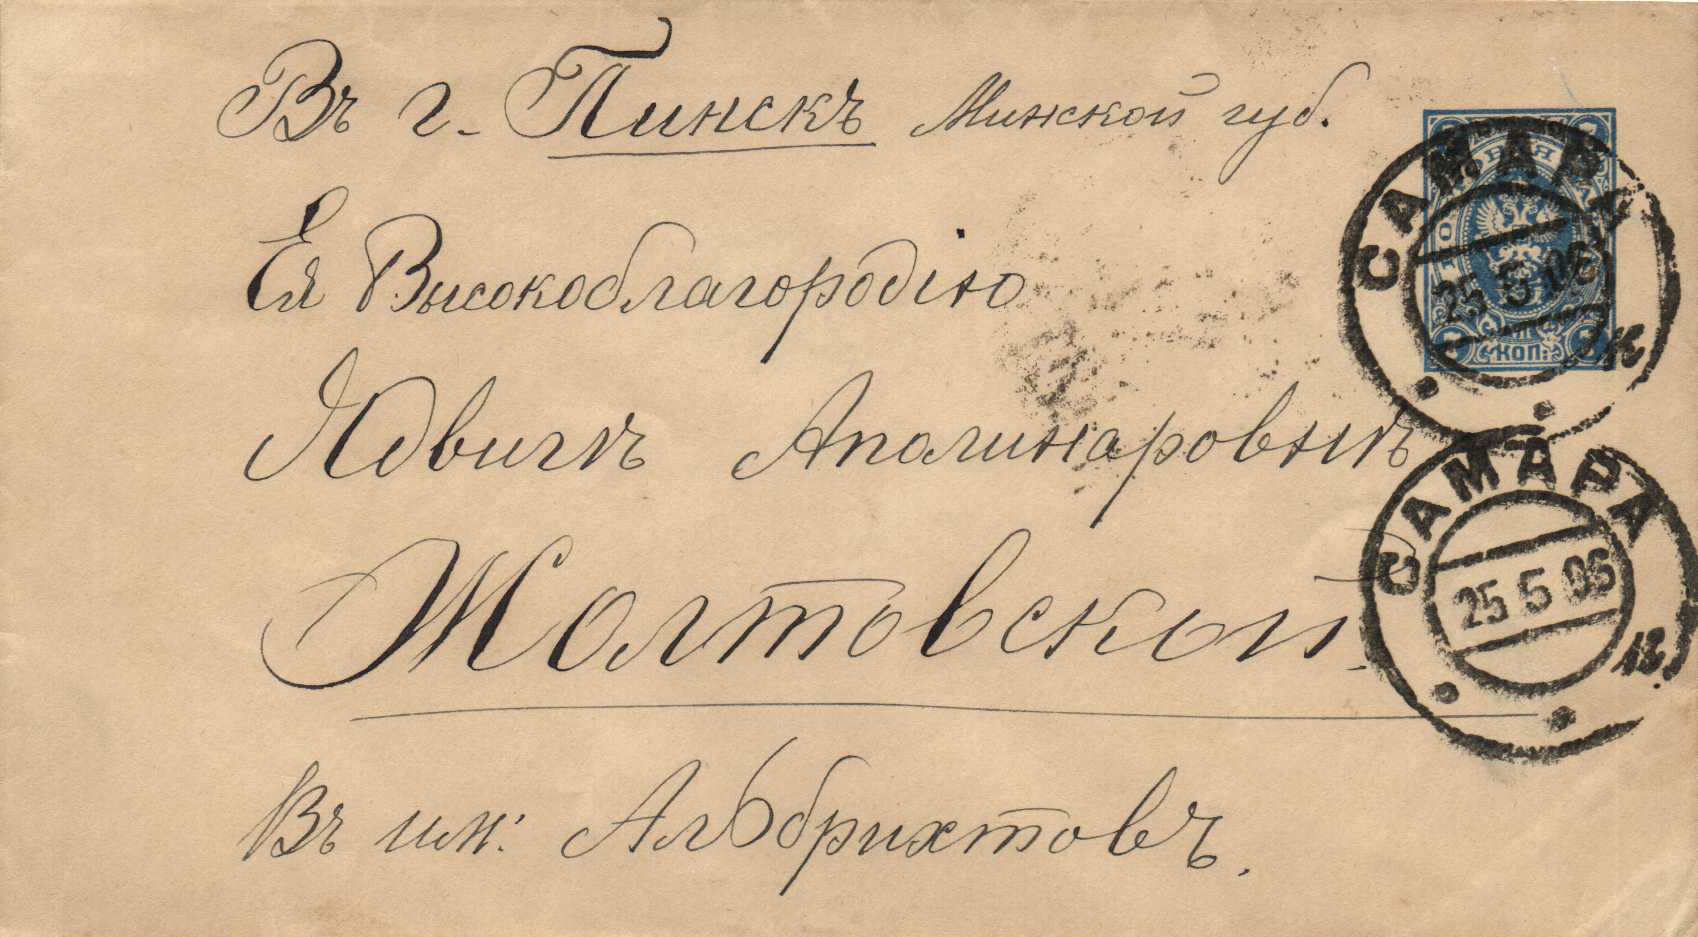 Въ г. Пинскъ Минской губ.
Ея Высокоблагородію
Ядвигѣ Аполинаровнѣ
Жолтовской
Въ им: Альбрихтовъ.
КОП:
САМАРА
25 5 06
САМАРА
25 5 06